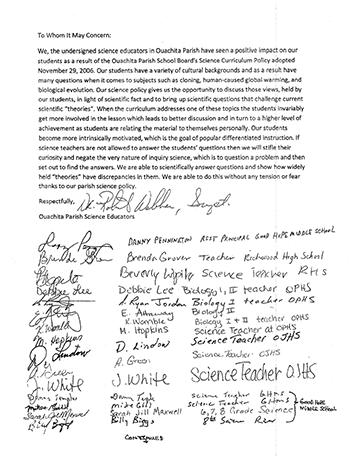 To Whom It May Concern:
We, the undersigned science educators in Ouachita Parish have seen a positive impact on our
students as a result of the Ouachita Parish School Board's Science Curriculum Policy adopted
November 29, 2006. Our students have a variety of cultural backgrounds and as a result have
many questions when it comes to subjects such as cloning, human-caused global warming, and
biological evolution. Our science policy gives us the opportunity to discuss those views, held
by our students, in light of scientific fact and to bring up scientific questions that challenge current
scientific "theories". When the curriculum addresses one of these topics the students invariably
get more involved in the lesson which leads to better discussion and in turn to a higher level of
achievement as students are relating the material to themselves personally. Our students
become more intrinsically motivated, which is the goal of popular differentiated instruction. If
science teachers are not allowed to answer the students' questions then we will stifle their
curiosity and negate the very nature of inquiry science, which is to question a problem and then
set out to find the answers. We are able to scientifically answer questions and show how widely
held "theories" have discrepancies in them. We are able to do this without any tension or fear
thanks to our parish science policy.
Respectfully,
Ouachita Parish Science Educators
DANNY PENNINGTON ASST PRINCIPAL GOOD HOPE MIDDLE SCHOOL
Brenda Grover Teacher Richwood High School
Beverly Science Teacher RHS
Debbie Lee Debbie Lee Biology I, II teacher OPHS
Ryan Jordan Biology I teacher OPHS
E. Biology II
K. Womble K Womble Biology I + II teacher OPHS
M. Hopkins M. Hopkins Science Teacher at OPHS
D. Lindow D. Lindow Science Teacher OJHS
A. Green Science Teacher OJHS
J. White J. White Science Teacher OJHS
Donna Science Teacher GHMS
Mike Science Teacher GHMS Good Hope
Sarah Jill Maxwell 6, 7, 8 Grade Science Middle School
Billy Biggs 8th
CONTINUED